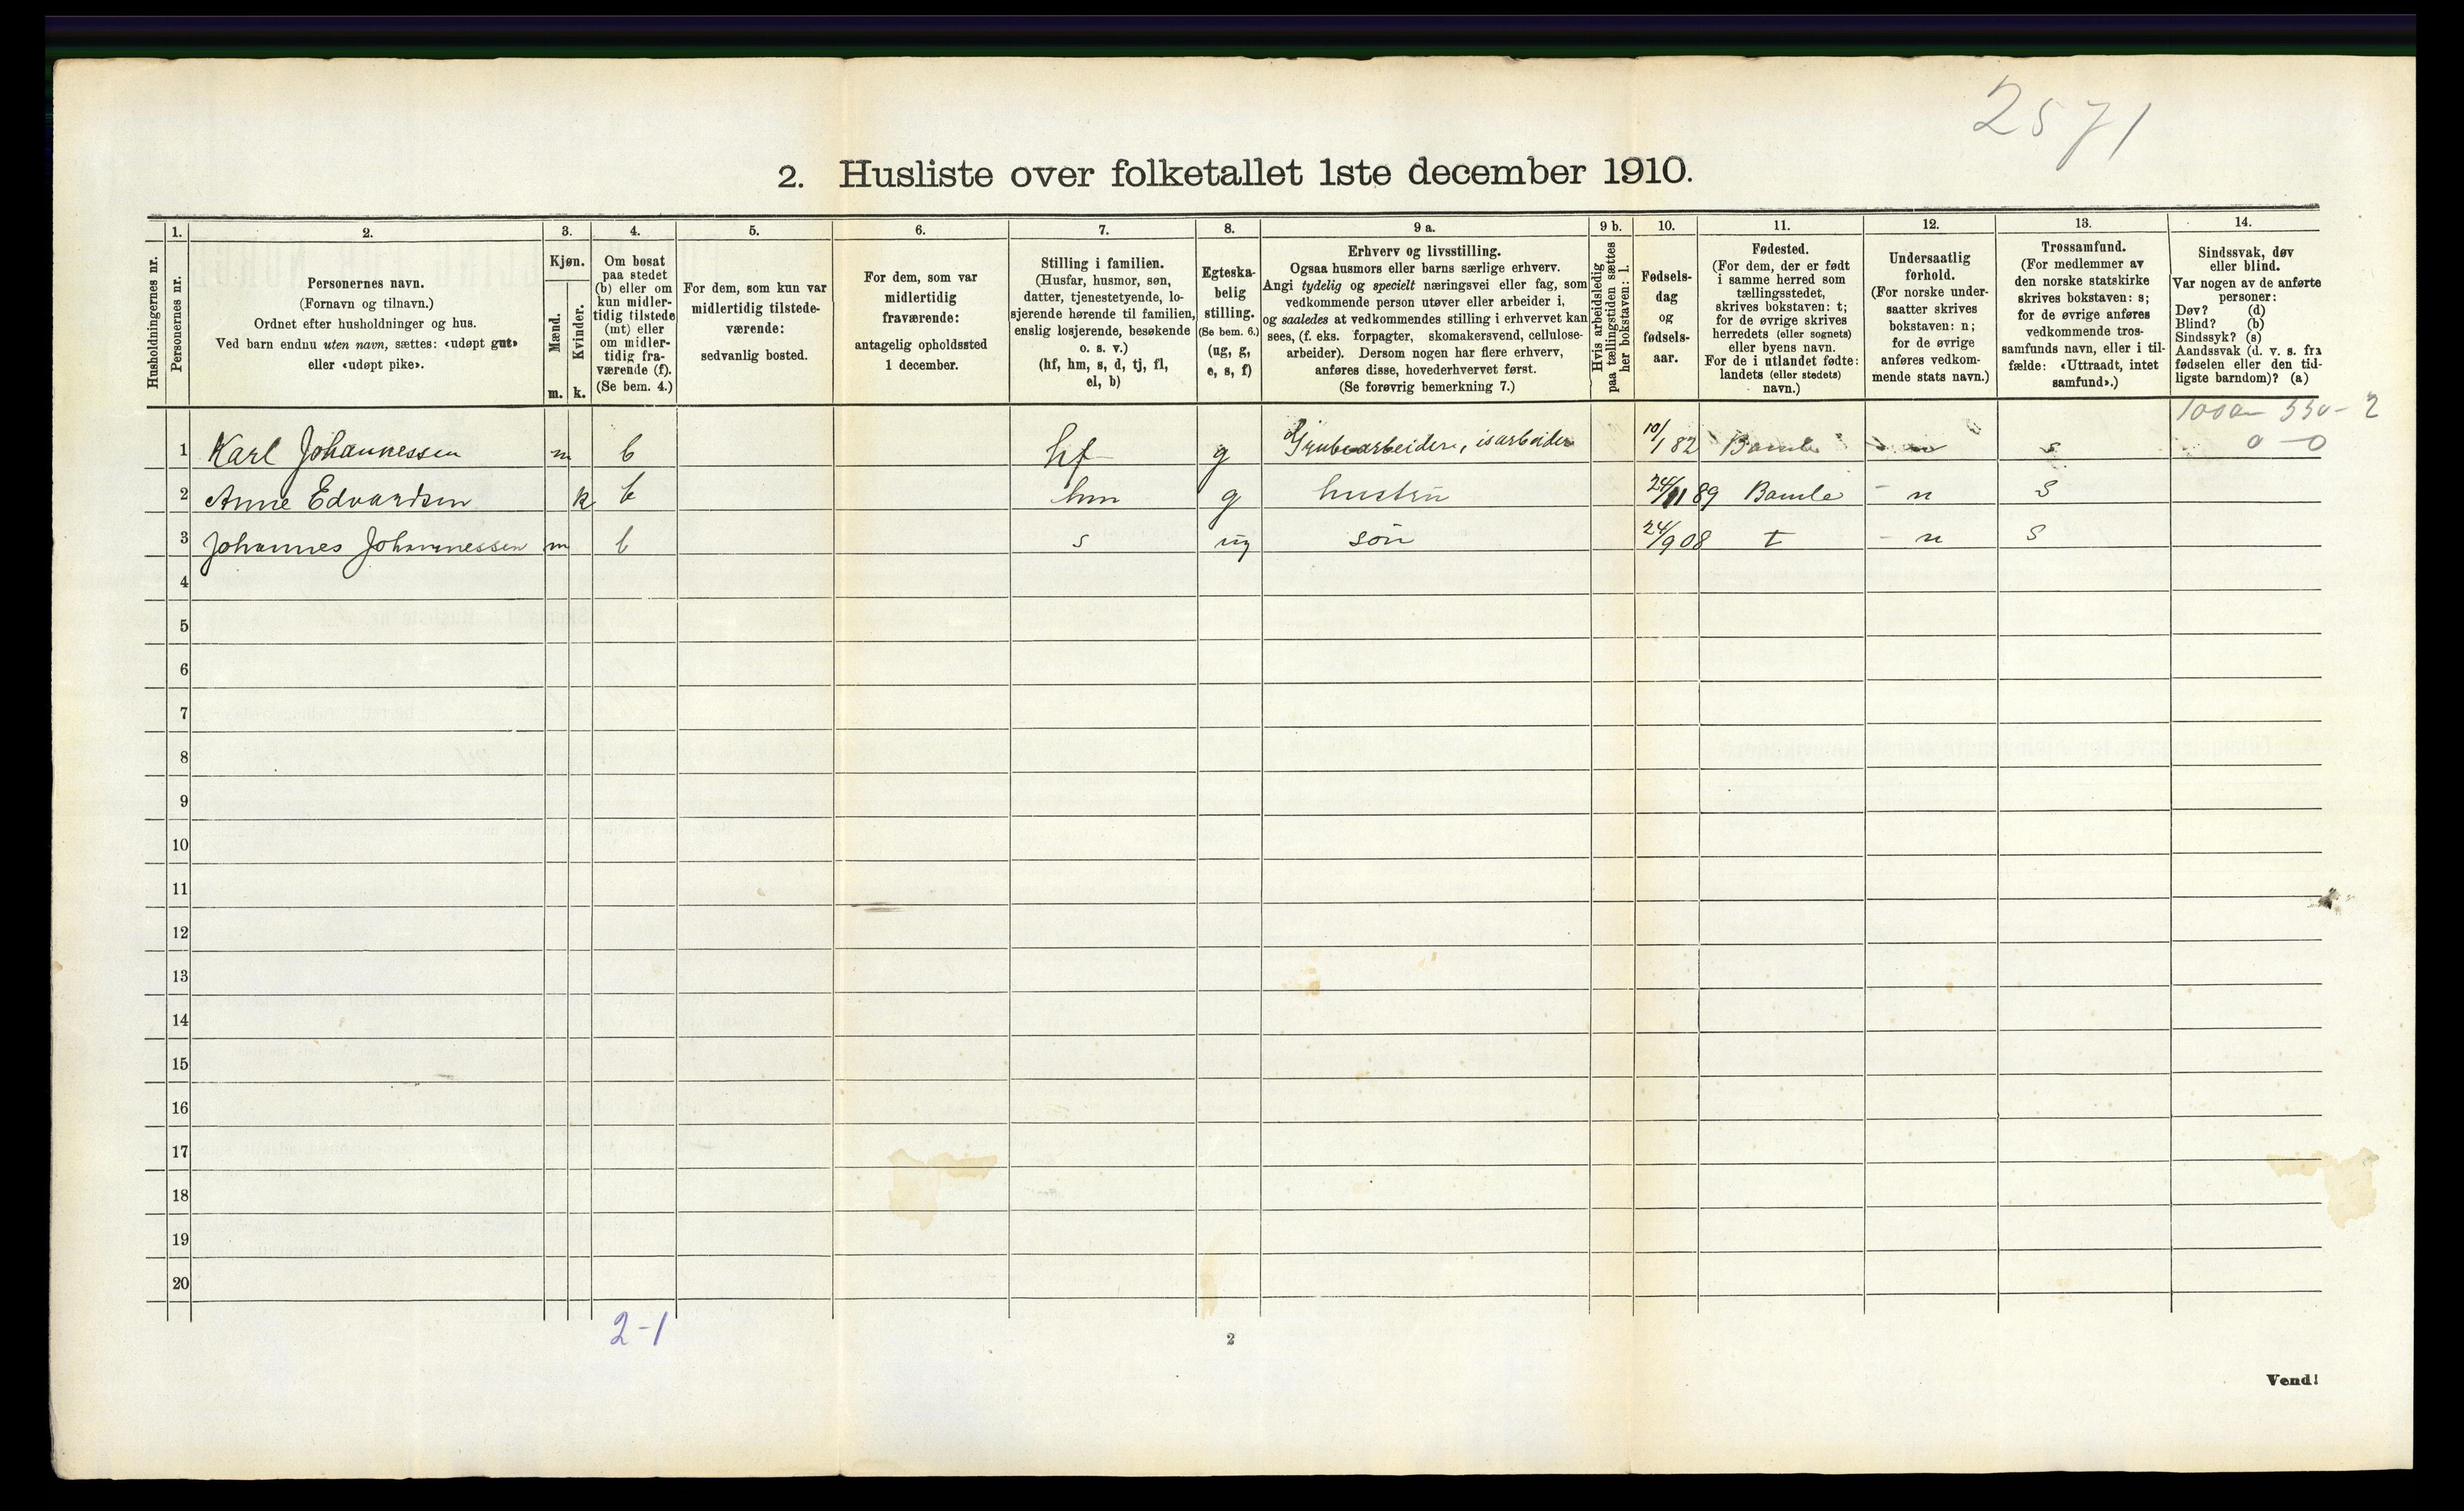 2571
2. Husliste over folketallet 1ste december 1910.
Husholdningernes nr.
1.
Personernes nr.
2.
Personernes navn.
(Fornavn og tilnavn.)
Ordnet efter husholdninger og hus.
Ved barn endnu uten navn, sættes: «udøpt gut»
eller «udøpt pike».
3.
Kjøn.
Mænd.
m.
Kvinder.
k.
4.
Om bosat
paa stedet
(b) eller om
kun midler-
tidig tilstede
(mt) eller
om midler-
tidig fra-
værende (f).
(Se bem. 4.)
5.
For dem, som kun var
midlertidig tilstede-
værende:
sedvanlig bosted.
6.
For dem, som var
midlertidig
fraværende:
antagelig opholdssted
1 december.
7.
Stilling i familien.
(Husfar, husmor, søn,
datter, tjenestetyende, lo-
sjerende hørende til familien,
enslig losjerende, besøkende
o. s. v.)
(hf, hm, s, d, tj, fl,
el, b)
8.
Egteska-
belig
stilling.
(Se bem. 6.)
(ug, g,
e, s, f)
9 a.
Erhverv og livsstilling.
Ogsaa husmors eller barns særlige erhverv.
Angi tydelig og specielt næringsvei eller fag, som
vedkommende person utøver eller arbeider i,
og saaledes at vedkommendes stilling i erhvervet kan
sees, (f. eks. forpagter, skomakersvend, cellulose-
arbeider). Dersom nogen har flere erhverv,
anføres disse, hovederhvervet først.
(Se forøvrig bemerkning 7.)
9 b.
Hvis arbeidsledig
paa tællingstiden sættes
her bokstaven: l.
10.
Fødsels-
dag
og
fødsels-
aar.
11.
Fødested.
(For dem, der er født
i samme herred som
tællingsstedet,
skrives bokstaven: t;
for de øvrige skrives
herredets (eller sognets)
eller byens navn.
For de i utlandet fødte:
landets (eller stedets)
navn.)
12.
Undersaatlig
forhold.
(For norske under-
saatter skrives
bokstaven: n;
for de øvrige
anføres vedkom-
mende stats navn.)
13.
Trossamfund.
(For medlemmer av
den norske statskirke
skrives bokstaven: s;
for de øvrige anføres
vedkommende tros-
samfunds navn, eller i til-
fælde: «Uttraadt, intet
samfund».)
14.
Sindssvak, døv
eller blind.
Var nogen av de anførte
personer:
Døv? (d)
Blind? (b)
Sindssyk? (s)
Aandssvak (d. v. s. fra
fødselen eller den tid-
ligste barndom)? (a)
0 - 0
1 Karl Johannessen m b hf g Grubearbeider, isarbeider 10/1 82 Bamle n s
2 Anne Edvardsen k b hm g hustru 24/11 89 Bamle n s
3 Johannes Johannessen m b s ug søn 24/9 08 t n s
4
5
6
7
8
9
10
11
12
13
14
15
16
17
18
19
20
2-1
2
Vend!